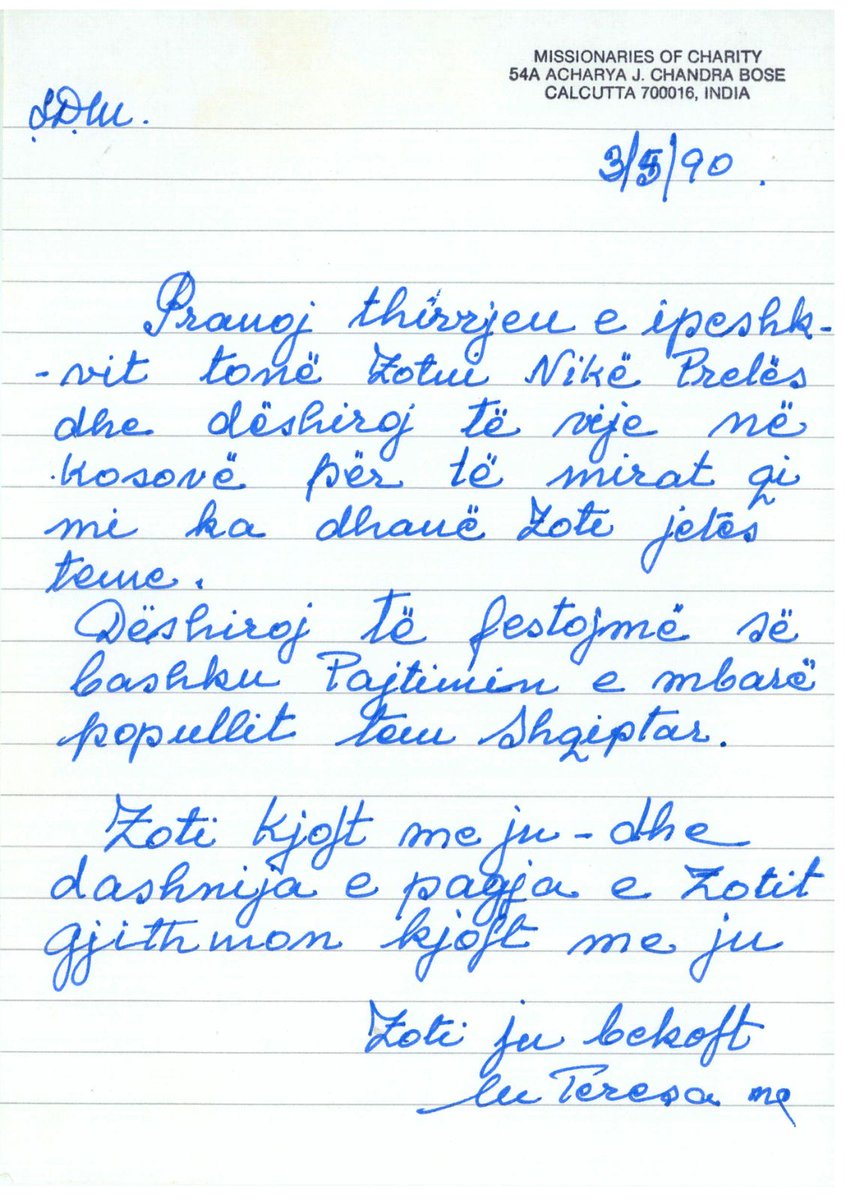 MISSIONARIES OF CHARITY
54A ACHARYA J. CHANDRA BOSE
CALCUTTA 700016, INDIA
LDM.
3/5/90.
Pranoj thirrjen e ipeshk-
-vit tonë Zotni Nikë Prelës
dhe dëshiroj të vije në
Kosovë për të mirat qi
mi ka dhanë Zoti jetës
teme.
Dëshiroj të festojmë së
bashku Pajtimin e mbarë
popullit tem Shqiptar.
Zoti kjoft me ju - dhe
dashnija e pagja e Zotit
gjithmon kjoft me ju
Zoti ju bekoft
M Teresa mc